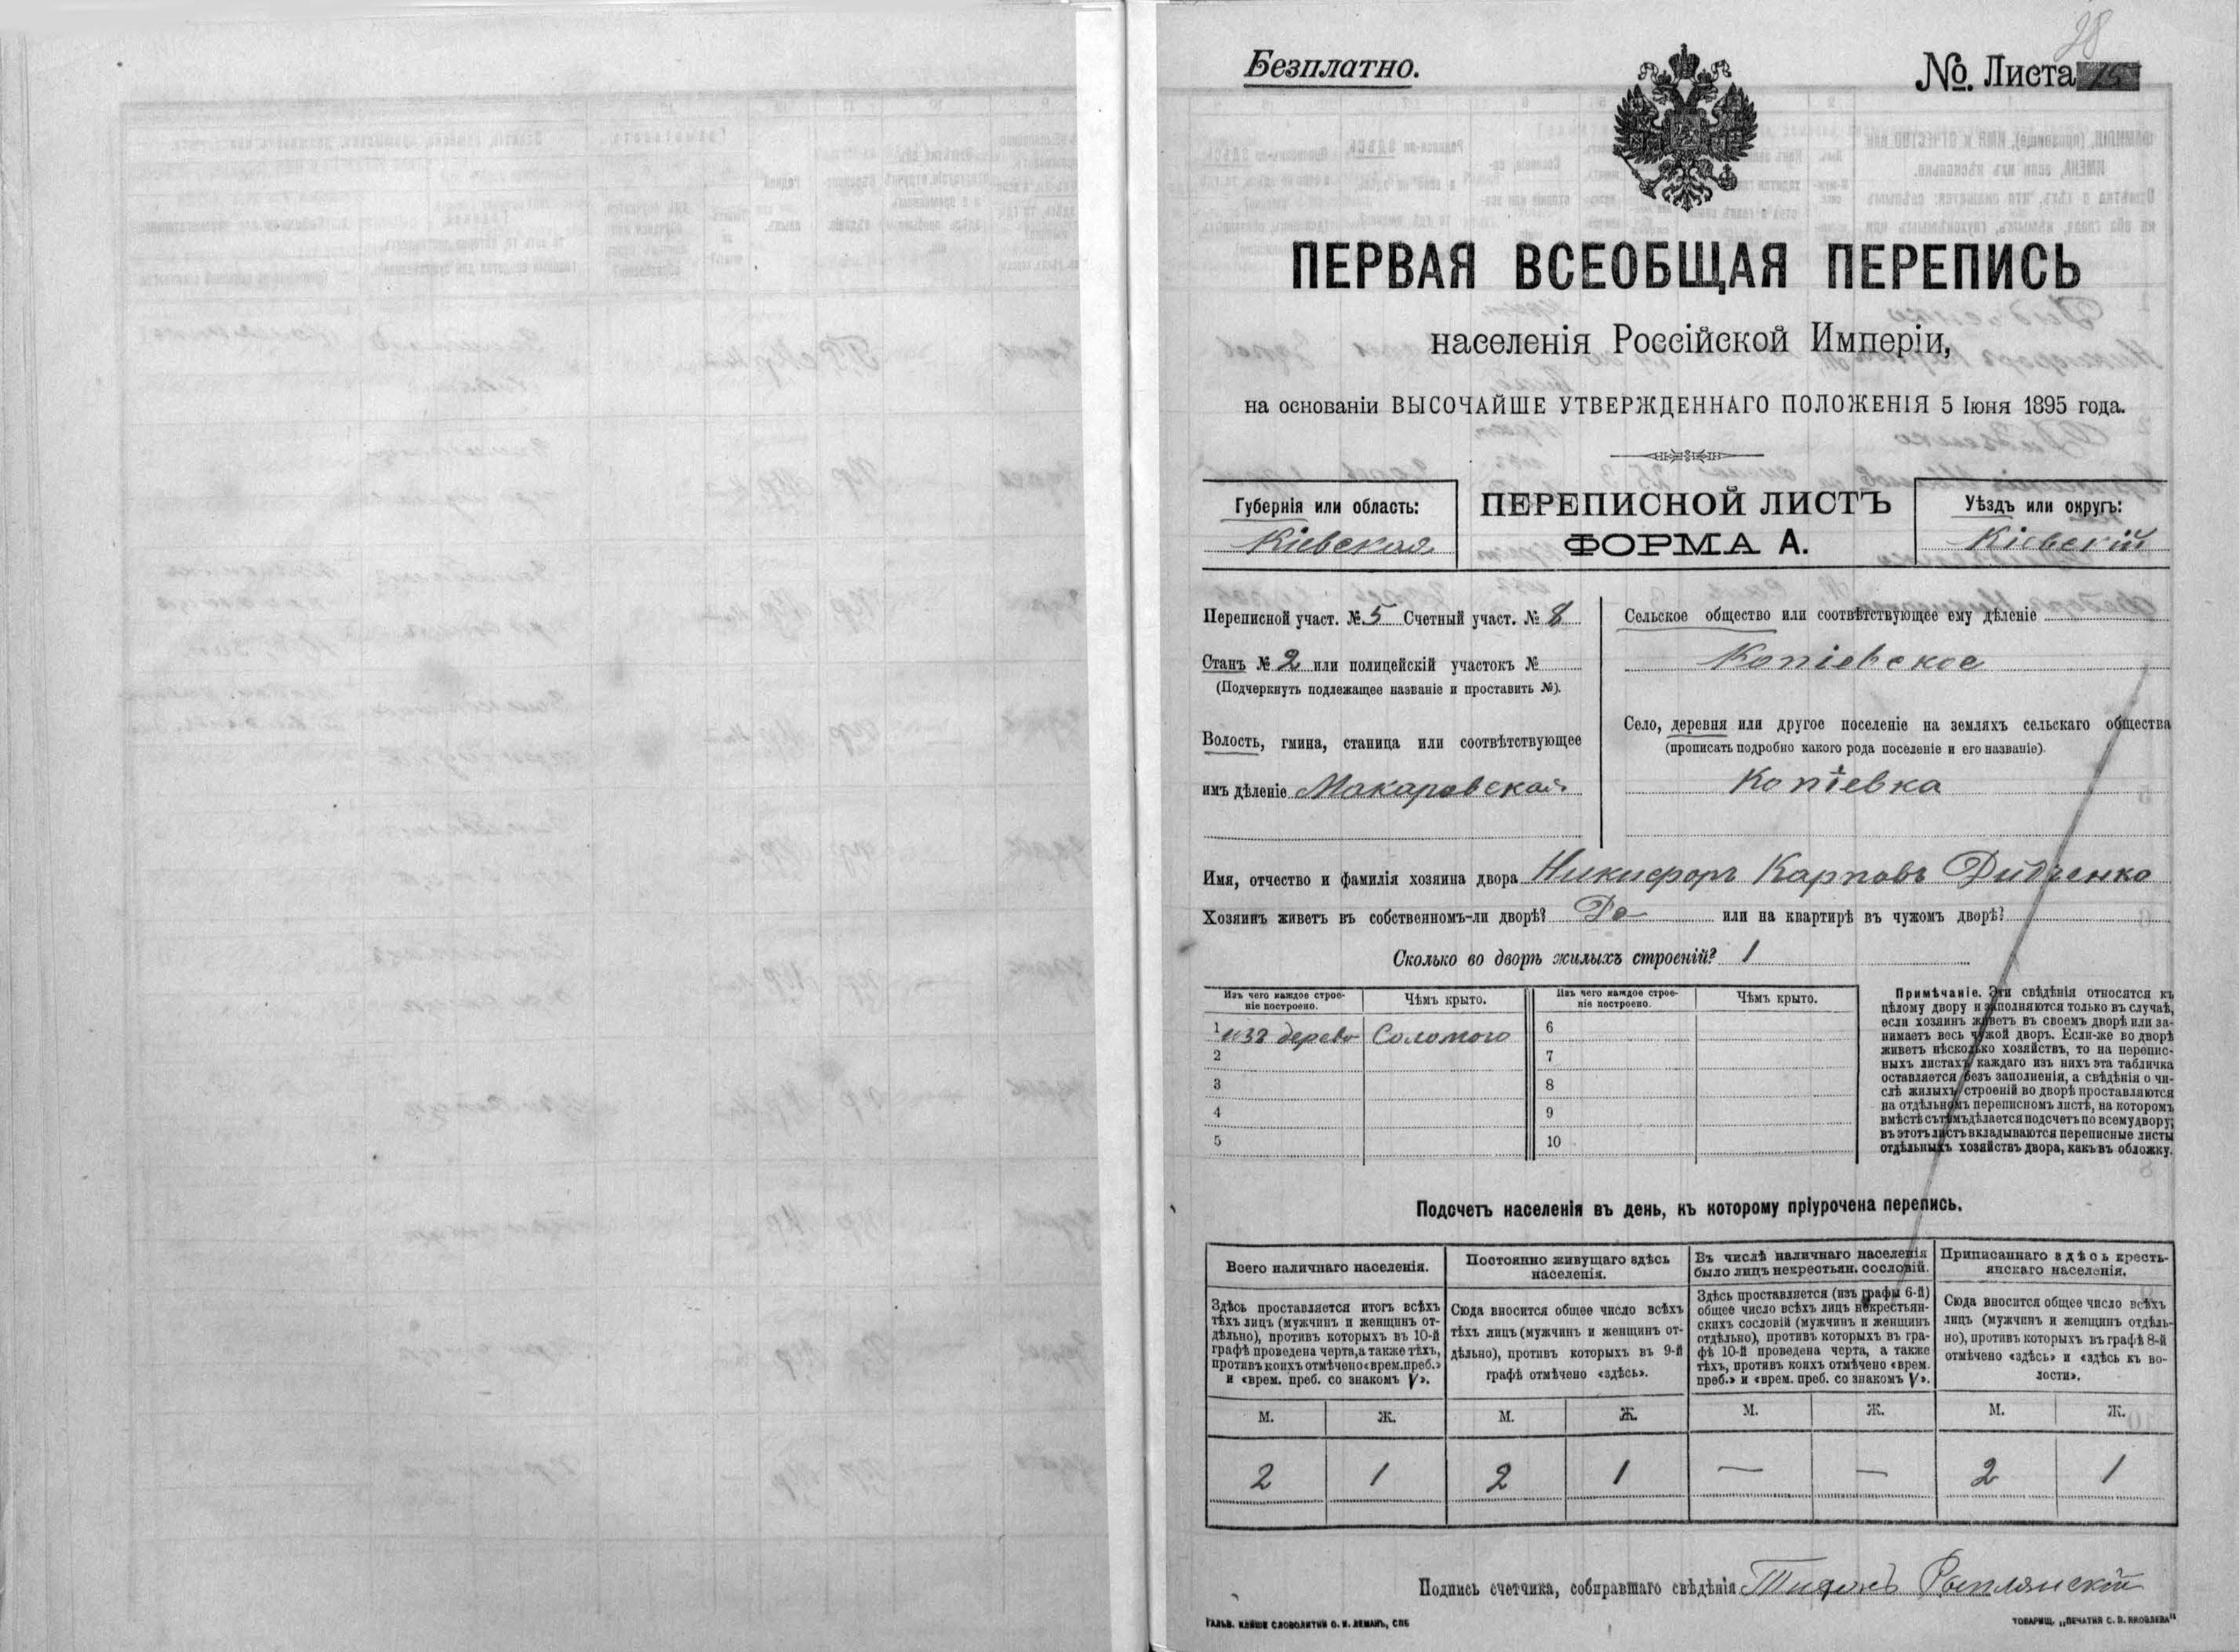 28
Безплатно.
№. Листа 15
ПЕРВАЯ ВСЕОБЩАЯ ПЕРЕПИСЬ
населенія Россійской Имперіи,
на основаніи ВЫСОЧАЙШЕ УТВЕРЖДЕННАГО ПОЛОЖЕНІЯ 5 Іюня 1895 года.
Губернія или область:
Кіевская
ПЕРЕПИСНОЙ ЛИСТЪ
ФОРМА А.
Уѣздъ или округъ:
Кіевскій
Переписной участ. № 5 Счетный участ. № 8
Станъ № 2 или полицейскій участокъ №
(Подчеркнуть подлежащее названіе и проставить №).
Волость, гмина, станица или соотвѣтствующее
имъ дѣленіе Макаровская
Сельское общество или соотвѣтствующее ему дѣленіе
Копіевское
Село, деревня или другое поселеніе на земляхъ сельскаго общества
(прописать подробно какого рода поселеніе и его названіе).
Копіевка
Имя, отчество и фамилія хозяина двора Никифоръ Карповъ Дидченко
Хозяинъ живетъ въ собственномъ-ли дворѣ? Да или на квартирѣ въ чужомъ дворѣ?
Сколько во дворѣ жилыхъ строеній? 1
Изъ чего каждое строе-
ніе построено.
Чѣмъ крыто.
Изъ чего каждое строе-
ніе построено.
Чѣмъ крыто.
1 изъ дерева Соломою 6
2 7
3 8
4 9
5 10
Примѣчаніе. Эти свѣдѣнія относятся къ
цѣлому двору и заполняются только въ случаѣ,
если хозяинъ живетъ въ своемъ дворѣ или за-
нимаетъ весь чужой дворъ. Если-же во дворѣ
живетъ нѣсколько хозяйствъ, то на перепис-
ныхъ листахъ каждаго изъ нихъ эта табличка
оставляется безъ заполненія, а свѣдѣнія о чи-
слѣ жилыхъ строеній во дворѣ проставляются
на отдѣльномъ переписномъ листѣ, на которомъ
вмѣстѣ съ тѣмъ дѣлается подсчетъ по всему двору;
въ этотъ листъ вкладываются переписные листы
отдѣльныхъ хозяйствъ двора, какъ въ обложку.
Подсчетъ населенія въ день, къ которому пріурочена перепись.
Всего наличнаго населенія.
Здѣсь проставляется итогъ всѣхъ
тѣхъ лицъ (мужчинъ и женщинъ от-
дѣльно), противъ которыхъ въ 10-й
графѣ проведена черта, а также тѣхъ,
противъ коихъ отмѣчено «врем. преб.»
и «врем. преб. со знакомъ V».
Постоянно живущаго здѣсь
населенія.
Сюда вносится общее число всѣхъ
тѣхъ лицъ (мужчинъ и женщинъ от-
дѣльно), противъ которыхъ въ 9-й
графѣ отмѣчено «здѣсь».
Въ числѣ наличнаго населенія
было лицъ некрестьян. сословій.
Здѣсь проставляется (изъ графы 6-й)
общее число всѣхъ лицъ некрестьян-
скихъ сословій (мужчинъ и женщинъ
отдѣльно), противъ которыхъ въ гра-
фѣ 10-й проведена черта, а также
тѣхъ, противъ коихъ отмѣчено «врем.
преб.» и «врем. преб. со знакомъ V».
Приписаннаго здѣсь кресть-
янскаго населенія.
Сюда вносится общее число всѣхъ
лицъ (мужчинъ и женщинъ отдѣль-
но), противъ которыхъ въ графѣ 8-й
отмѣчено «здѣсь» и «здѣсь къ во-
лости».
М. Ж. М. Ж. М. Ж. М. Ж.
2 1 2 1 — — 2 1
Подпись счетчика, собиравшаго свѣдѣнія
ГАЛЬВ. КЛИШЕ СЛОВОЛИТНИ О. И. ЛЕМАНЪ, СПБ
ТОВАРИЩ. „ПЕЧАТНЯ С. П. ЯКОВЛЕВА"